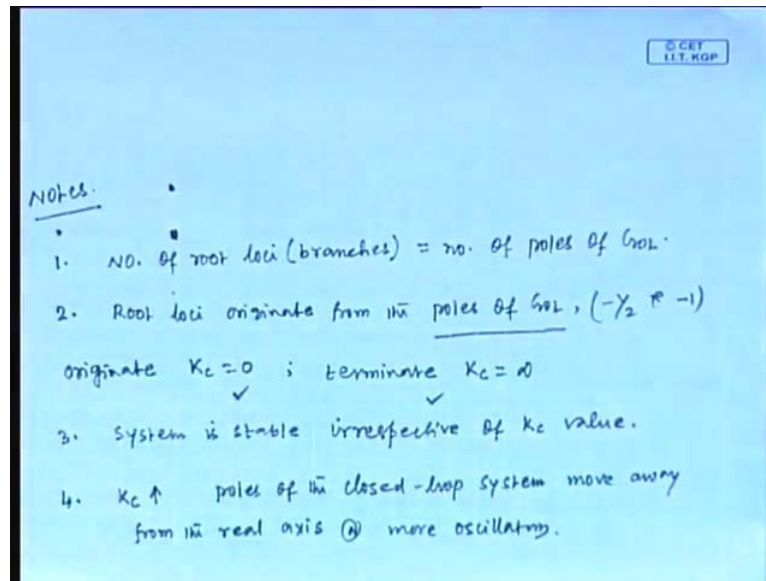 © CET
I.I.T. KGP
Notes.
1. NO. of root loci (branches) = no. of poles of GOL.
2. Root loci originate from the poles of GOL, (-1/2 & -1)
originate Kc = 0 ; terminate Kc = ∞
3. System is stable irrespective of Kc value.
4. Kc ↑ poles of the closed-loop system move away
from the real axis more oscillatory.